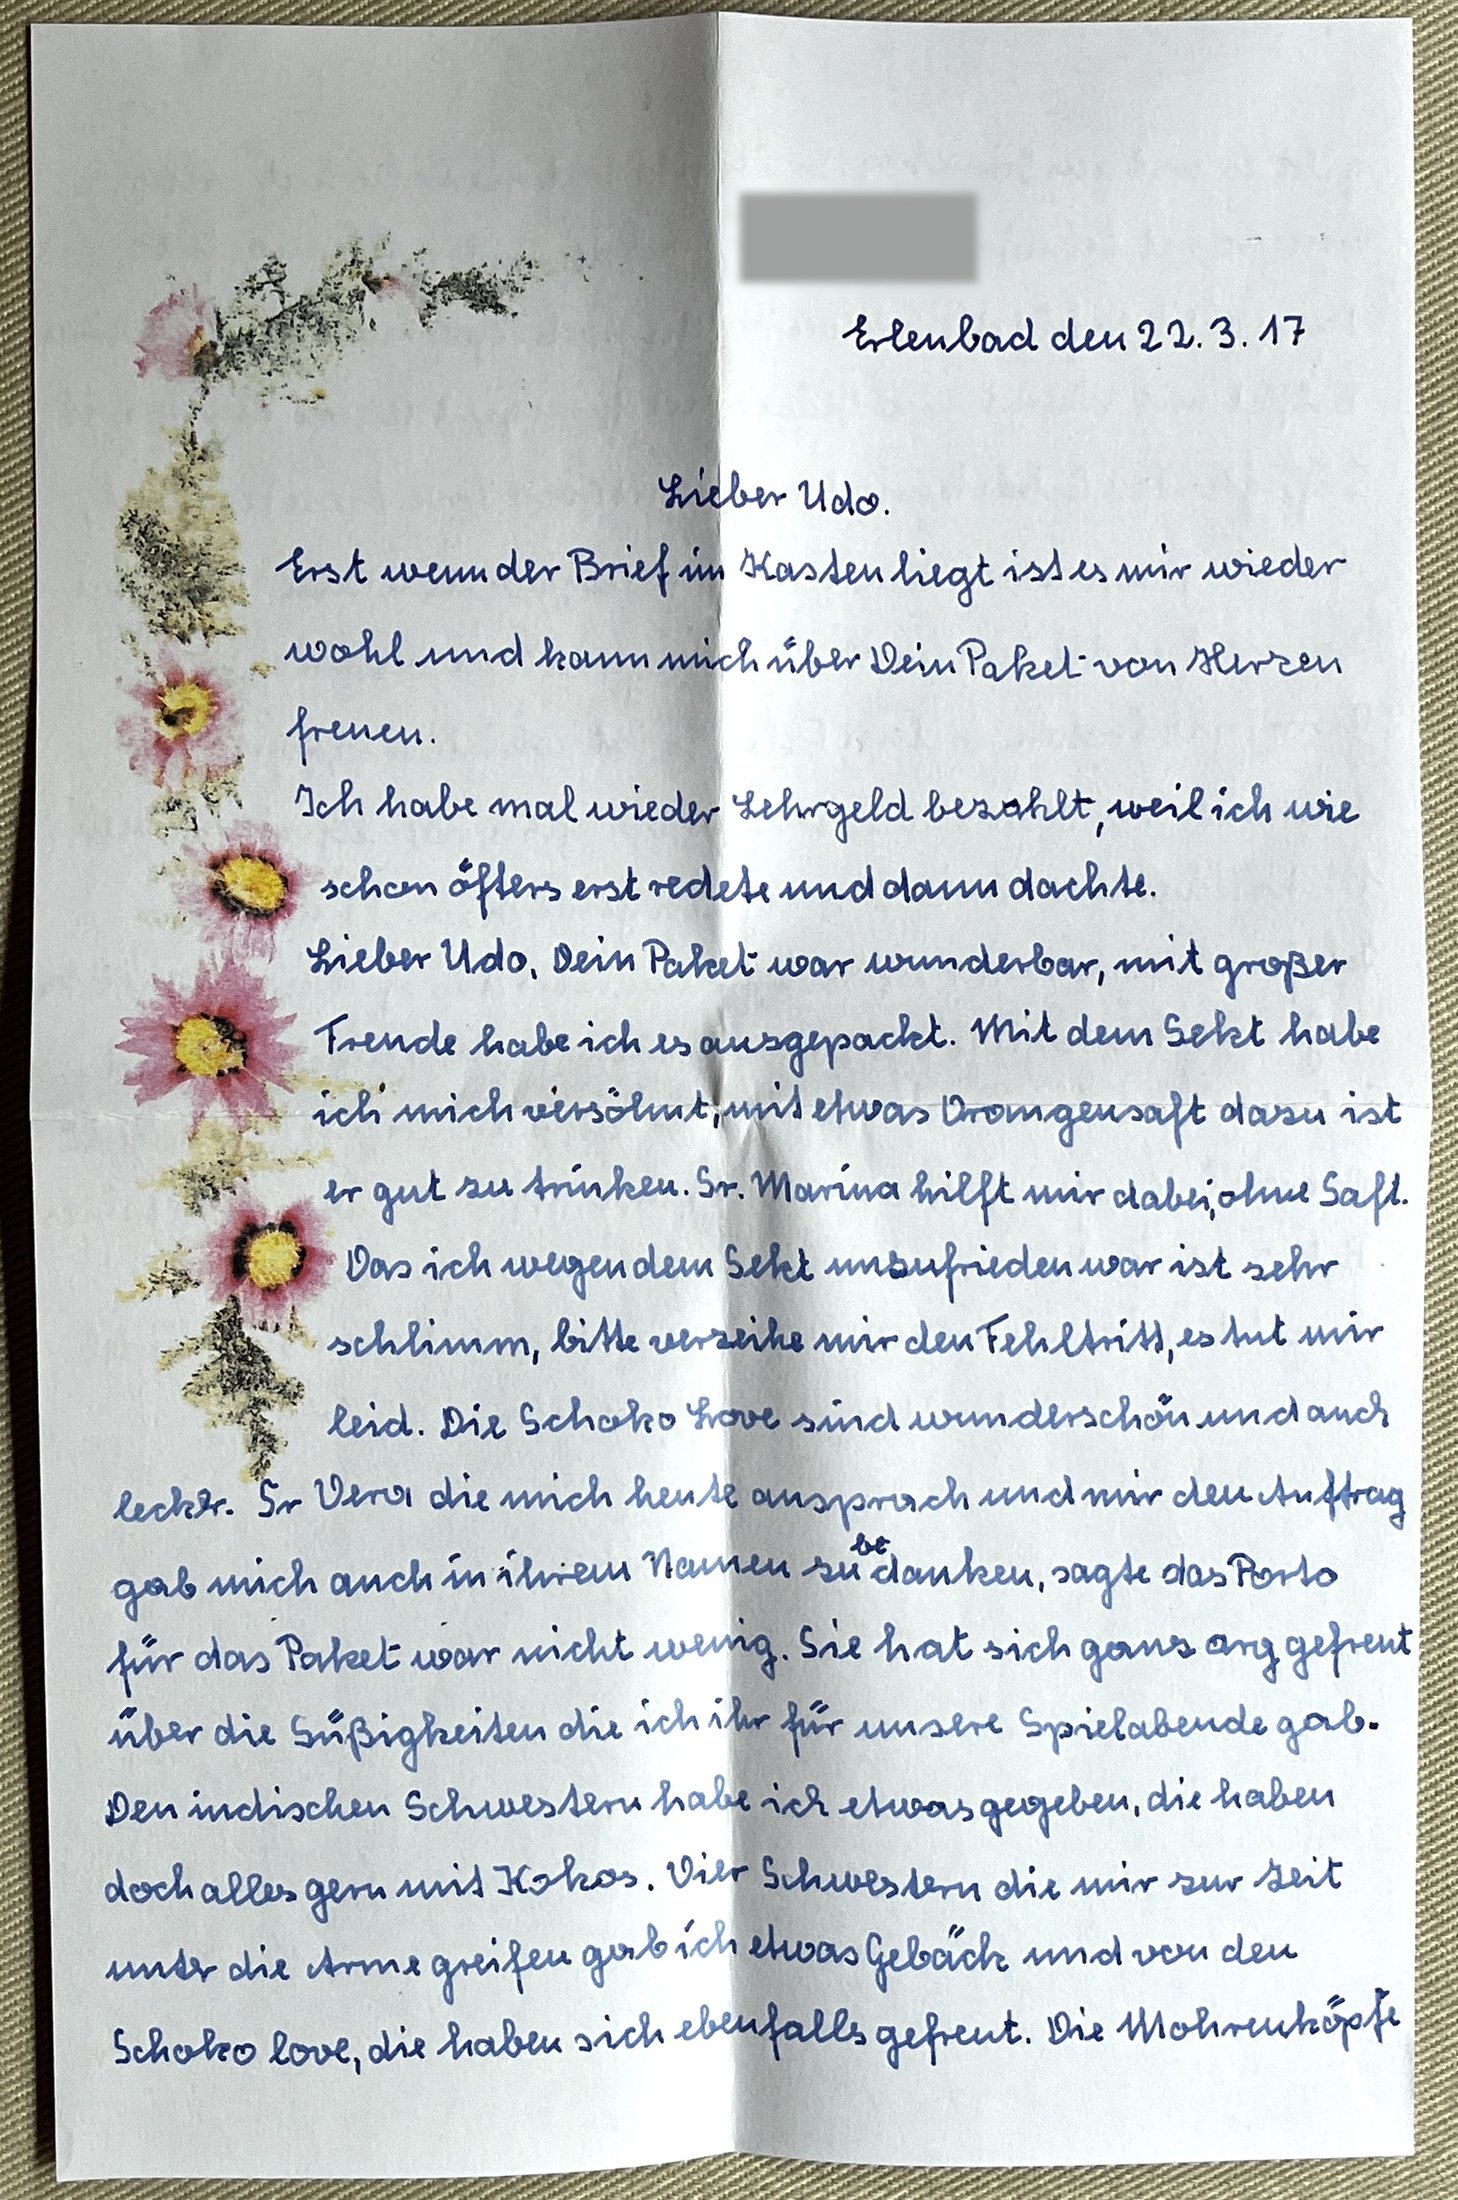 Erlenbad den 22.3.17
Lieber Udo.
Erst wenn der Brief im Kasten liegt ist es mir wieder
wohl und kann mich über Dein Paket von Herzen
freuen.
Ich habe mal wieder Lehrgeld bezahlt, weil ich wie
schon öfters erst redete und dann dachte.
Lieber Udo, Dein Paket war wunderbar, mit großer
Freude habe ich es ausgepackt. Mit dem Sekt habe
ich mich versöhnt, mit etwas Orangensaft dazu ist
er gut zu trinken. Sr. Marina hilft mir dabei, ohne Saft.
Das ich wegen dem Sekt unzufrieden war ist sehr
schlimm, bitte verzeihe mir den Fehltritt, es tut mir
leid. Die Schoko Love sind wunderschön und auch
lecker. Sr Vera die mich heute ansprach und mir den Auftrag
gab mich auch in ihrem Namen zu bedanken, sagte das Porto
für das Paket war nicht wenig. Sie hat sich ganz arg gefreut
über die Süßigkeiten die ich ihr für unsere Spielabende gab.
Den indischen Schwestern habe ich etwas gegeben, die haben
doch alles gern mit Kokos. Vier Schwestern die mir zur Zeit
unter die Arme greifen gab ich etwas Gebäck und von den
Schoko love, die haben sich ebenfalls gefreut. Die Mohrenköpfe